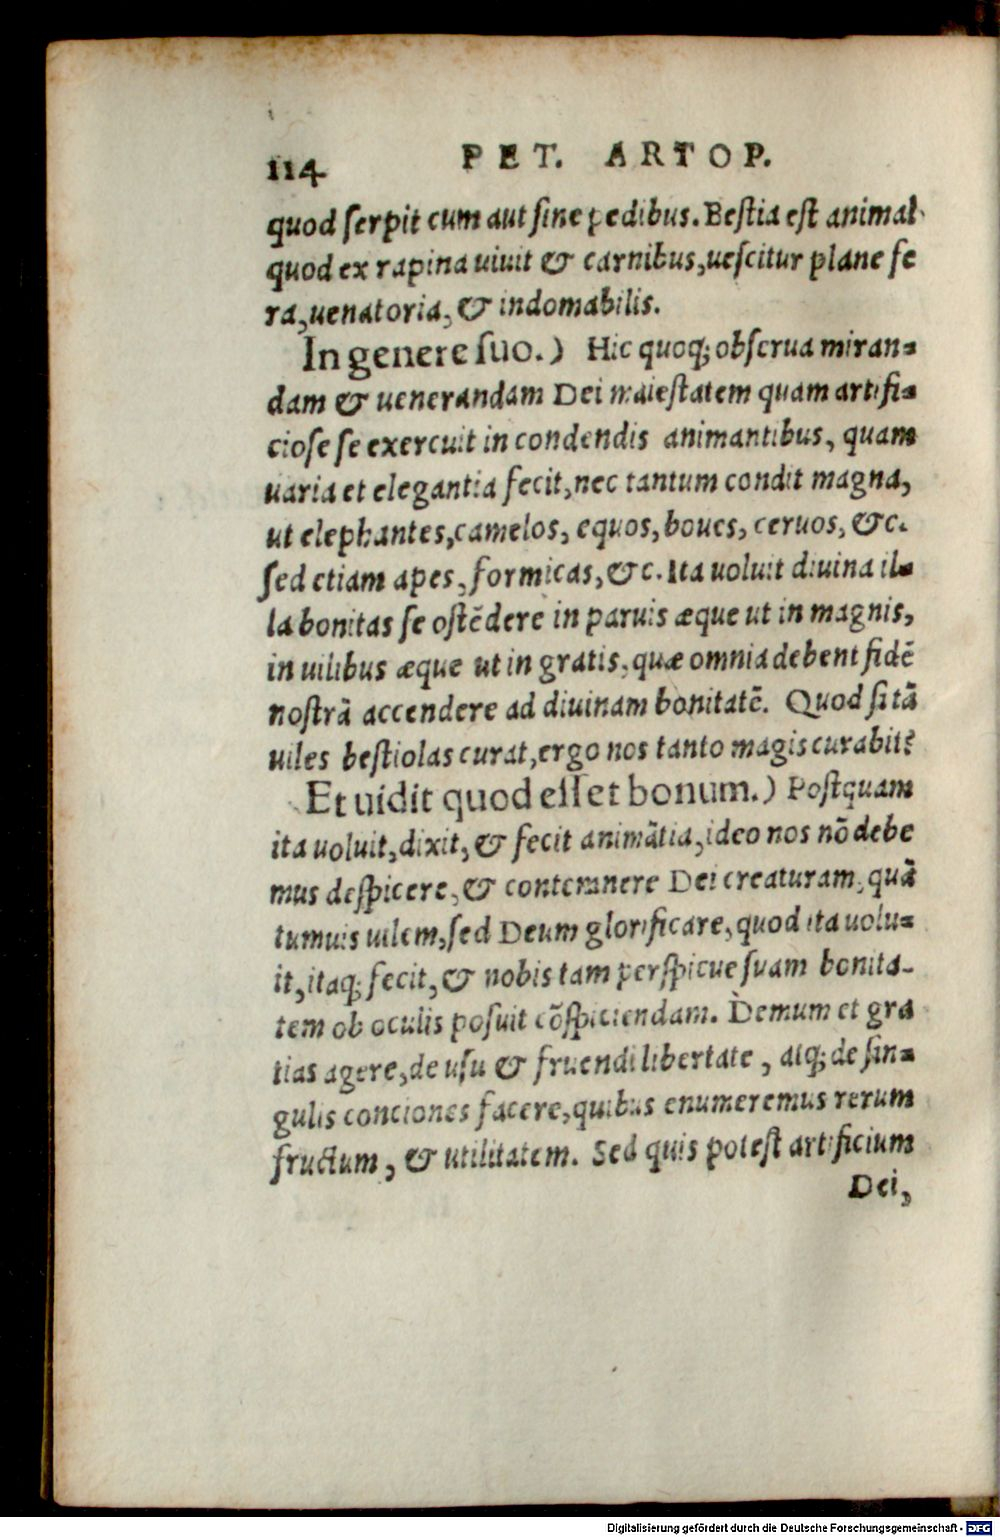 114 PET. ARTOP.
quod ſerpit cum aut ſine pedibus. Beſtia eſt animal
quod ex rapina uiuit & carnibus, ueſcitur plane fe
ra, uenatoria, & indomabilis.
In genere ſuo.) Hic quoq; obſerua miran=
dam & uenerandam Dei maieſtatem quam artifi=
cioſe ſe exercuit in condendis animantibus, quam
uaria et elegantia fecit, nec tantum condit magna,
ut elephantes, camelos, equos, boues, ceruos, &c.
ſed etiam apes, formicas, &c. Ita uoluit diuina il=
la bonitas ſe oſtēdere in paruis æque ut in magnis,
in uilibus æque ut in gratis, quæ omnia debent fidē
noſtrā accendere ad diuinam bonitatē. Quod ſi tā
uiles beſtiolas curat, ergo nos tanto magis curabit?
Et uidit quod eſſet bonum.) Poſtquam
ita uoluit, dixit, & fecit animātia, ideo nos nō debe
mus deſpicere, & contemnere Dei creaturam, quā
tumuis uilem, ſed Deum glorificare, quod ita uolu=
it, itaq; fecit, & nobis tam perſpicue ſuam bonita-
tem ob oculis poſuit cōſpiciendam. Demum et gra
tias agere, de uſu & fruendi libertate, atq; de ſin=
gulis conciones facere, quibus enumeremus rerum
fructum, & utilitatem. Sed quis poteſt artificium
Dei,
Digitalisierung gefördert durch die Deutsche Forschungsgemeinschaft - DFG